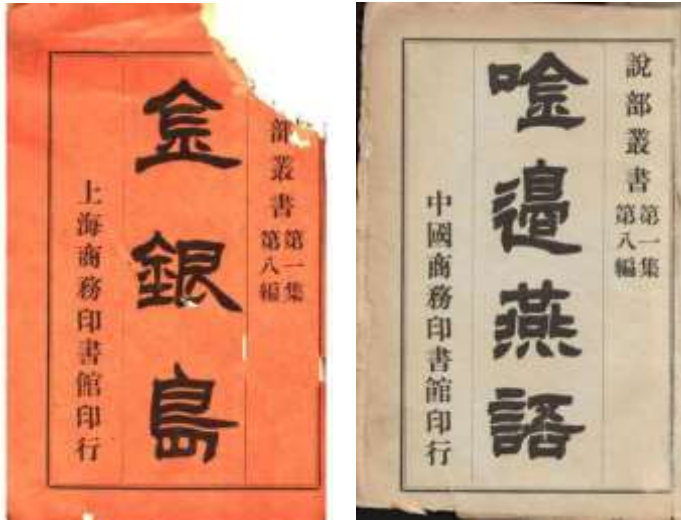 部叢書
第一集
第八編
金銀島
上海商務印書館印行
說部叢書
第一集
第八編
唫邊燕語
中國商務印書館印行